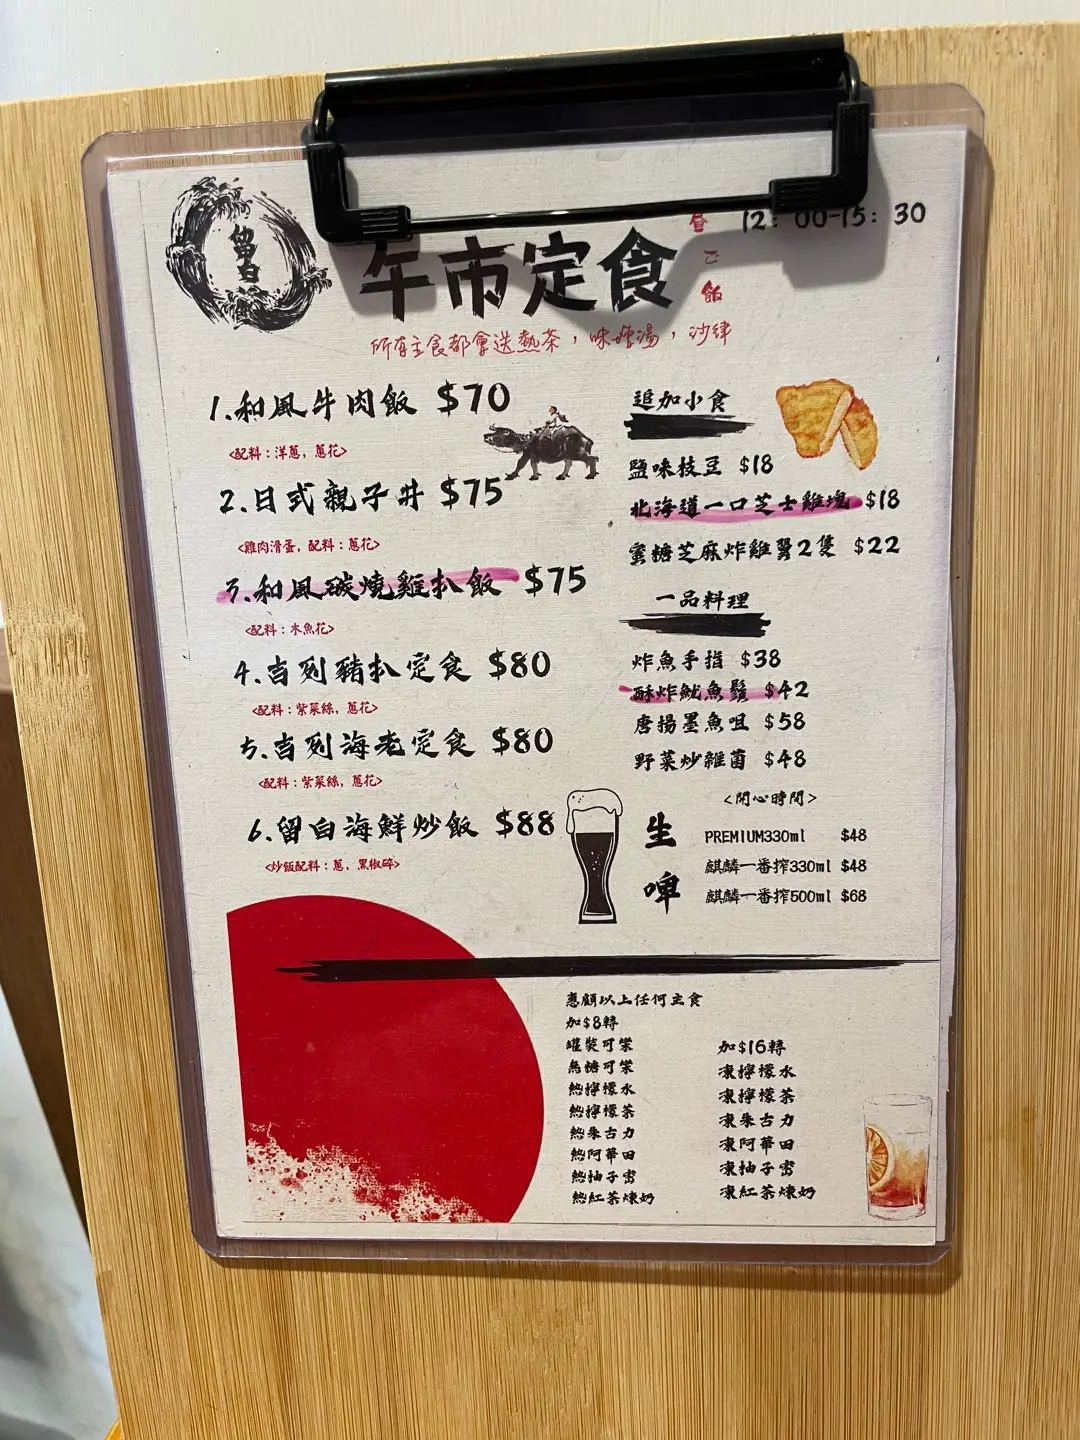 留白
午市定食
昼ご飯
12：00-15：30
所有主食都會送熱茶，味噌湯，沙律
1.和風牛肉飯 $70
<配料：洋蔥，蔥花>
2.日式親子丼 $75
<雞肉滑蛋，配料：蔥花>
3.和風碳燒雞扒飯 $75
<配料：木魚花>
4.吉列豬扒定食 $80
<配料：紫菜絲，蔥花>
5.吉列海老定食 $80
<配料：紫菜絲，蔥花>
6.留白海鮮炒飯 $88
<炒飯配料：蔥，黑椒碎>
追加小食
鹽味枝豆 $18
北海道一口芝士雞塊 $18
蜜糖芝麻炸雞翼2隻 $22
一品料理
炸魚手指 $38
酥炸魷魚鬚 $42
唐揚墨魚咀 $58
野菜炒雜菌 $48
<開心時間>
生啤
PREMIUM330ml $48
麒麟一番搾330ml $48
麒麟一番搾500ml $68
惠顧以上任何主食
加$8轉
罐裝可樂
無糖可樂
熱檸檬水
熱檸檬茶
熱朱古力
熱阿華田
熱柚子蜜
熱紅茶煉奶
加$16轉
凍檸檬水
凍檸檬茶
凍朱古力
凍阿華田
凍柚子蜜
凍紅茶煉奶